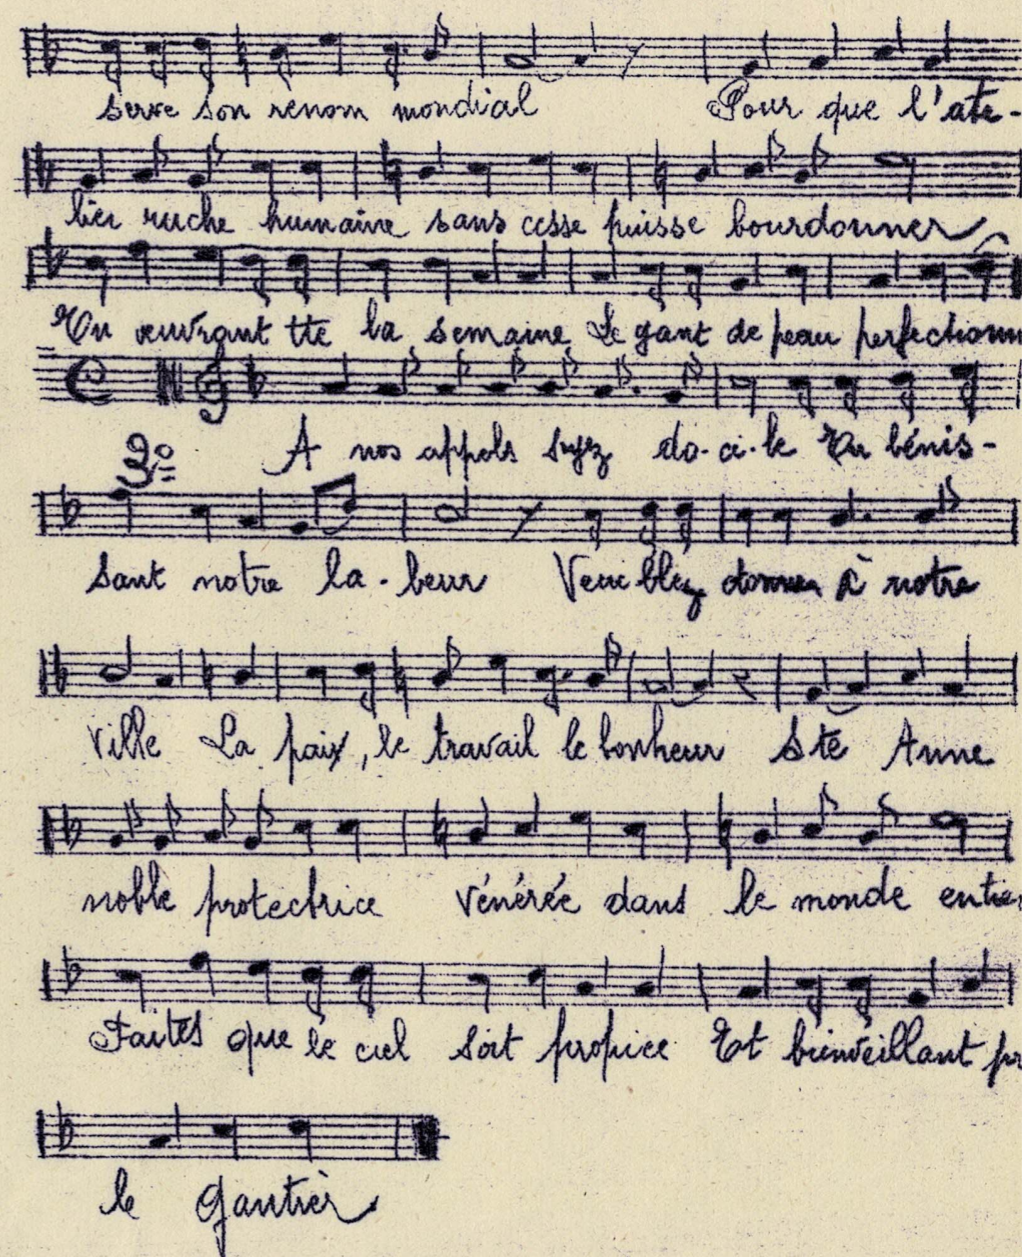 serve son renom mondial Pour que l'ate-
lier ruche humaine sans cesse puisse bourdonner
En œuvrant tte la semaine Le gant de peau perfectionn
2º A nos appels soyez do-ci-le En bénis-
sant notre la-beur Veuillez donner à notre
ville La paix, le travail le bonheur Ste Anne
noble protectrice Vénérée dans le monde entier
Faites que le ciel soit propice Et bienveillant pr
le gantier